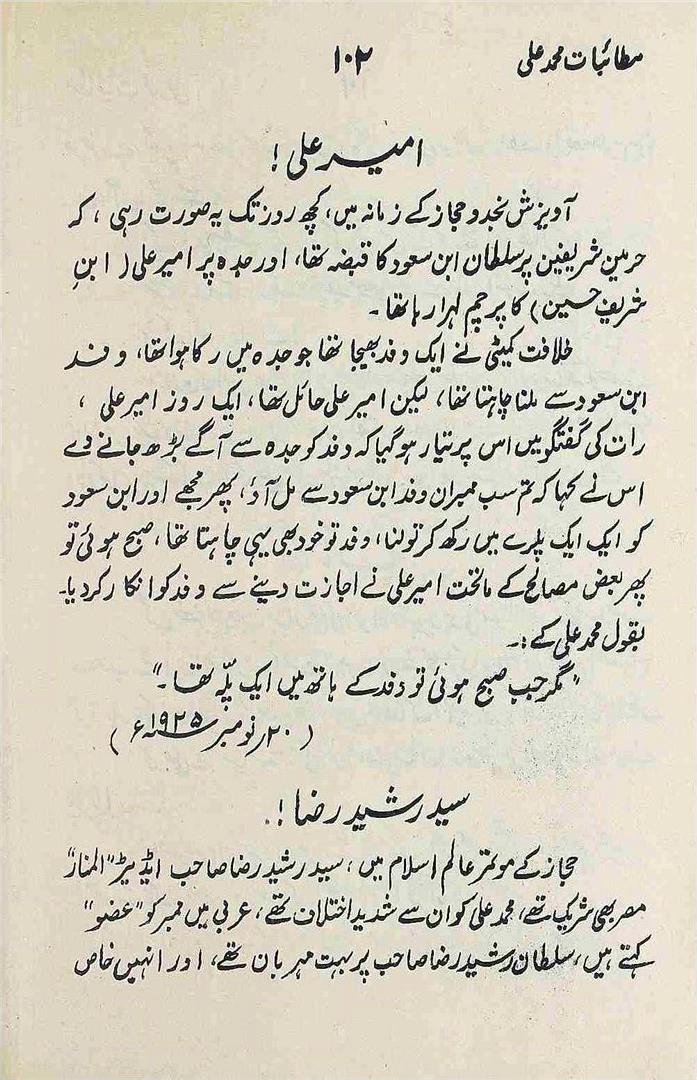 مطائبات محمد علی ۱۰۲
امیر علی!
آویزش نجد و حجاز کے زمانہ میں، کچھ روز تک یہ صورت رہی، کہ
حرمین شریفین پر سلطان ابن سعود کا قبضہ تھا، اور جدہ پر امیر علی (ابنِ
شریف حسین) کا پرچم لہرا رہا تھا۔
خلافت کمیٹی نے ایک وفد بھیجا تھا جو جدہ میں رکا ہوا تھا، وفد
ابن سعود سے ملنا چاہتا تھا، لیکن امیر علی حائل تھا، ایک روز امیر علی،
رات کی گفتگو میں اس پر تیار ہو گیا کہ وفد کو جدہ سے آگے بڑھ جانے دے
اس نے کہا کہ تم سب ممبران وفد ابن سعود سے مل آؤ، پھر مجھے اور ابن سعود
کو ایک ایک پلرے میں رکھ کر تولنا، وفد تو خود بھی یہی چاہتا تھا، صبح ہوئی تو
پھر بعض مصالح کے ماتحت امیر علی نے اجازت دینے سے وفد کو انکار کر دیا۔
بقول محمد علی کے:۔
"مگر جب صبح ہوئی تو وفد کے ہاتھ میں ایک پلّہ تھا۔"
(۲۰ر نومبر ۱۹۲۵ء)
سید رشید رضا!۔
حجاز کے موتمر عالم اسلام میں، سید رشید رضا صاحب ایڈیٹر "المنار"
مصر بھی شریک تھے، محمد علی کو ان سے شدید اختلاف تھے، عربی میں ممبر کو "عضو"
کہتے ہیں، سلطان رشید رضا صاحب پر بہت مہربان تھے، اور انہیں خاص